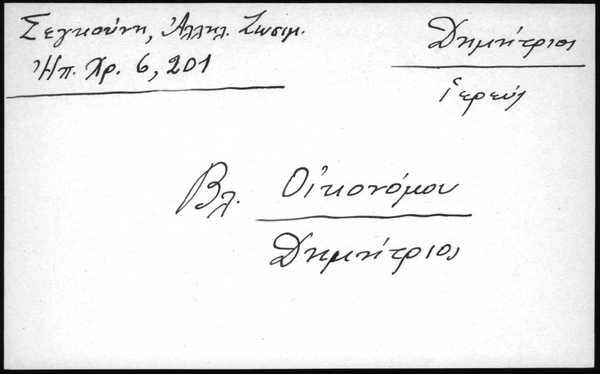 Σεγκούνη, Ἀλληλ. Ζωσιμ.
Ἠπ. Χρ. 6, 201
Δημήτριος
ἱερεύς
Βλ. Οἰκονόμου
Δημήτριος